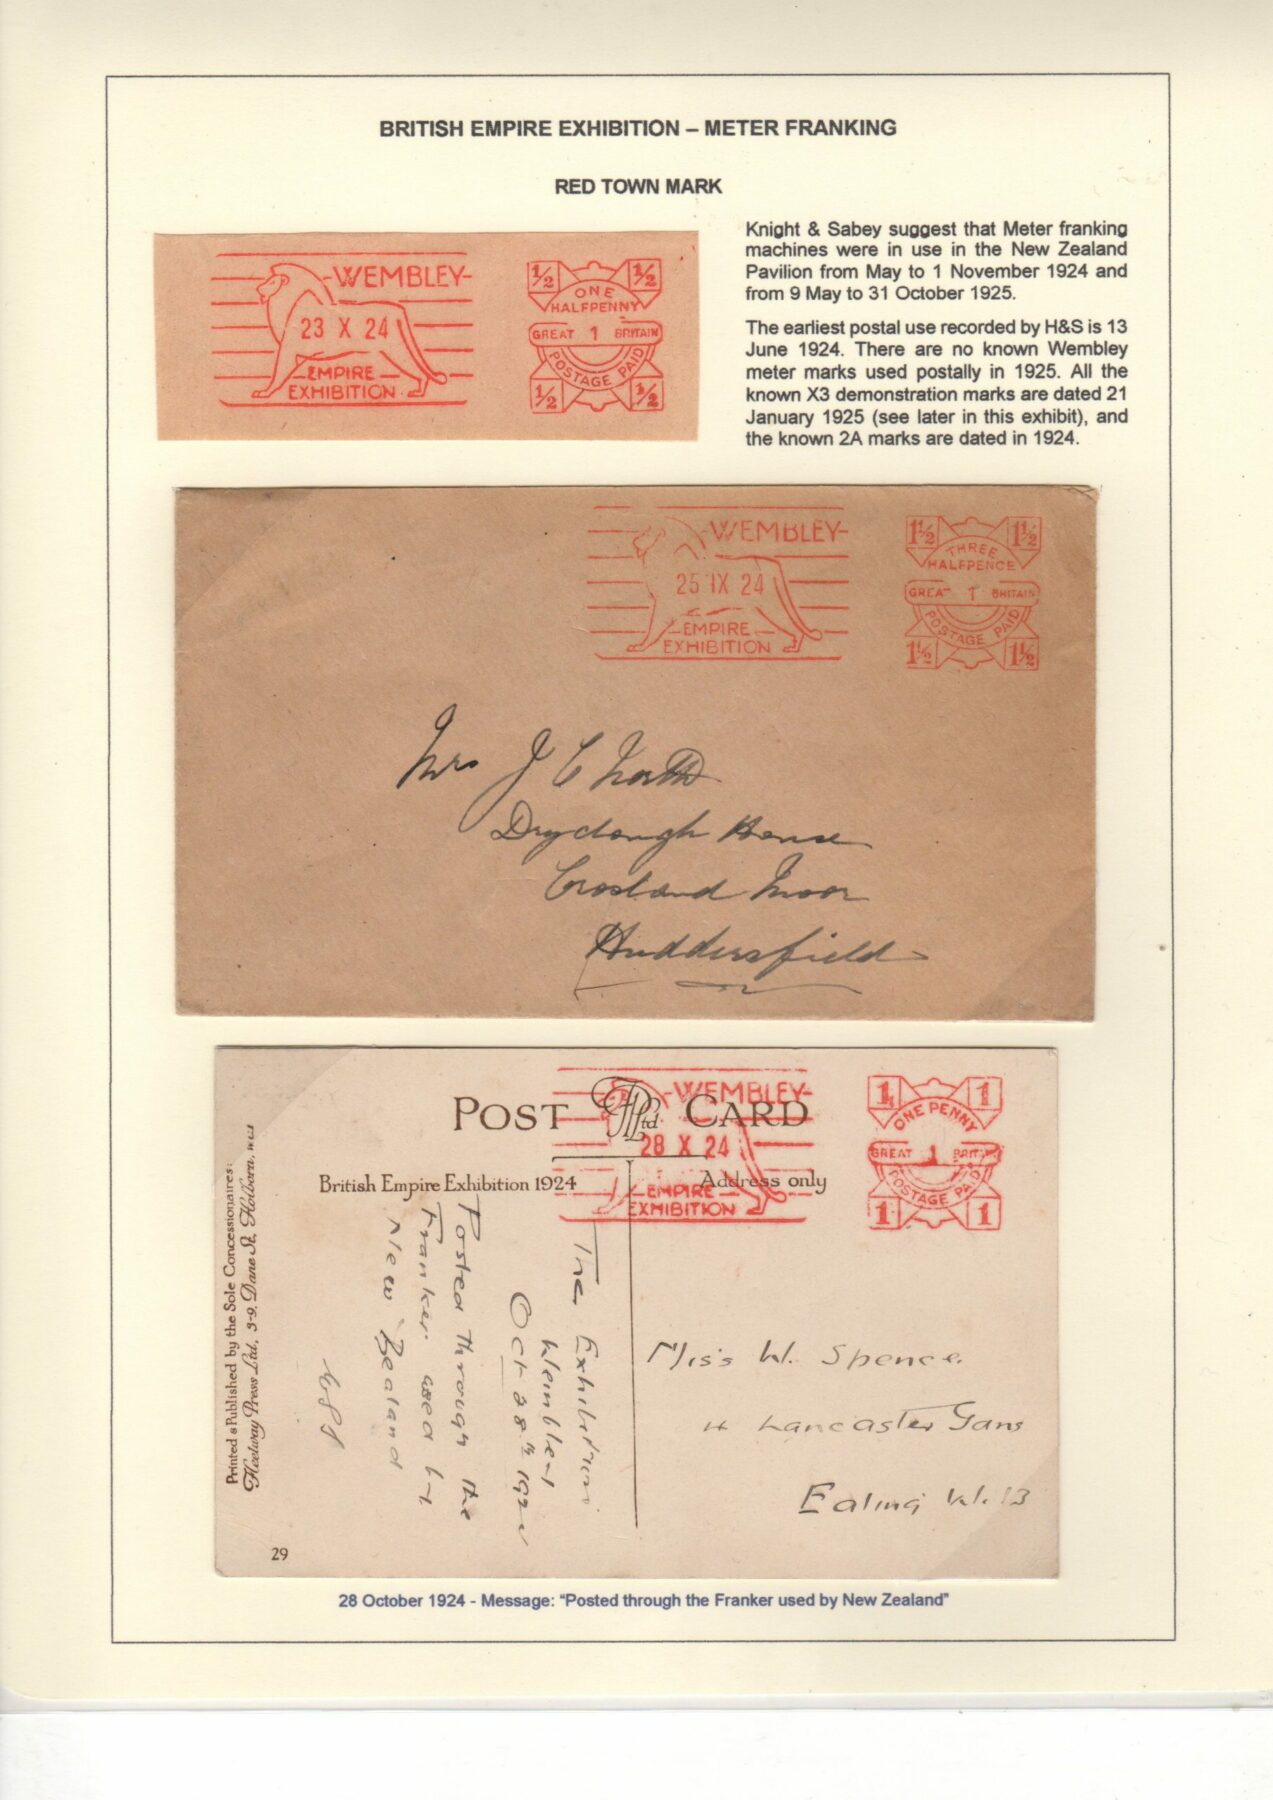 BRITISH EMPIRE EXHIBITION – METER FRANKING
RED TOWN MARK
Knight & Sabey suggest that Meter franking
machines were in use in the New Zealand
Pavilion from May to 1 November 1924 and
from 9 May to 31 October 1925.
The earliest postal use recorded by H&S is 13
June 1924. There are no known Wembley
meter marks used postally in 1925. All the
known X3 demonstration marks are dated 21
January 1925 (see later in this exhibit), and
the known 2A marks are dated in 1924.
WEMBLEY
23 X 24
EMPIRE
EXHIBITION
½ ½
ONE
HALFPENNY
GREAT 1 BRITAIN
POSTAGE PAID
½ ½
WEMBLEY
25 IX 24
EMPIRE
EXHIBITION
1½ 1½
THREE
HALFPENCE
GREAT 1 BRITAIN
POSTAGE PAID
1½ 1½
Mrs J C North
Dryclough House
Crosland Moor
Huddersfield
POST CARD
British Empire Exhibition 1924
Address only
WEMBLEY
28 X 24
EMPIRE
EXHIBITION
1 1
ONE PENNY
GREAT 1 BRITAIN
POSTAGE PAID
1 1
Printed & Published by the Sole Concessionaires:
Fleetway Press Ltd, 3-9, Dane St, Holborn, WC1
The Exhibition
Wembley
Oct 28th 1924
Posted through the
Franker used by
New Zealand
Miss W. Spence.
4 Lancaster Gdns
Ealing W.13
29
28 October 1924 - Message: “Posted through the Franker used by New Zealand”